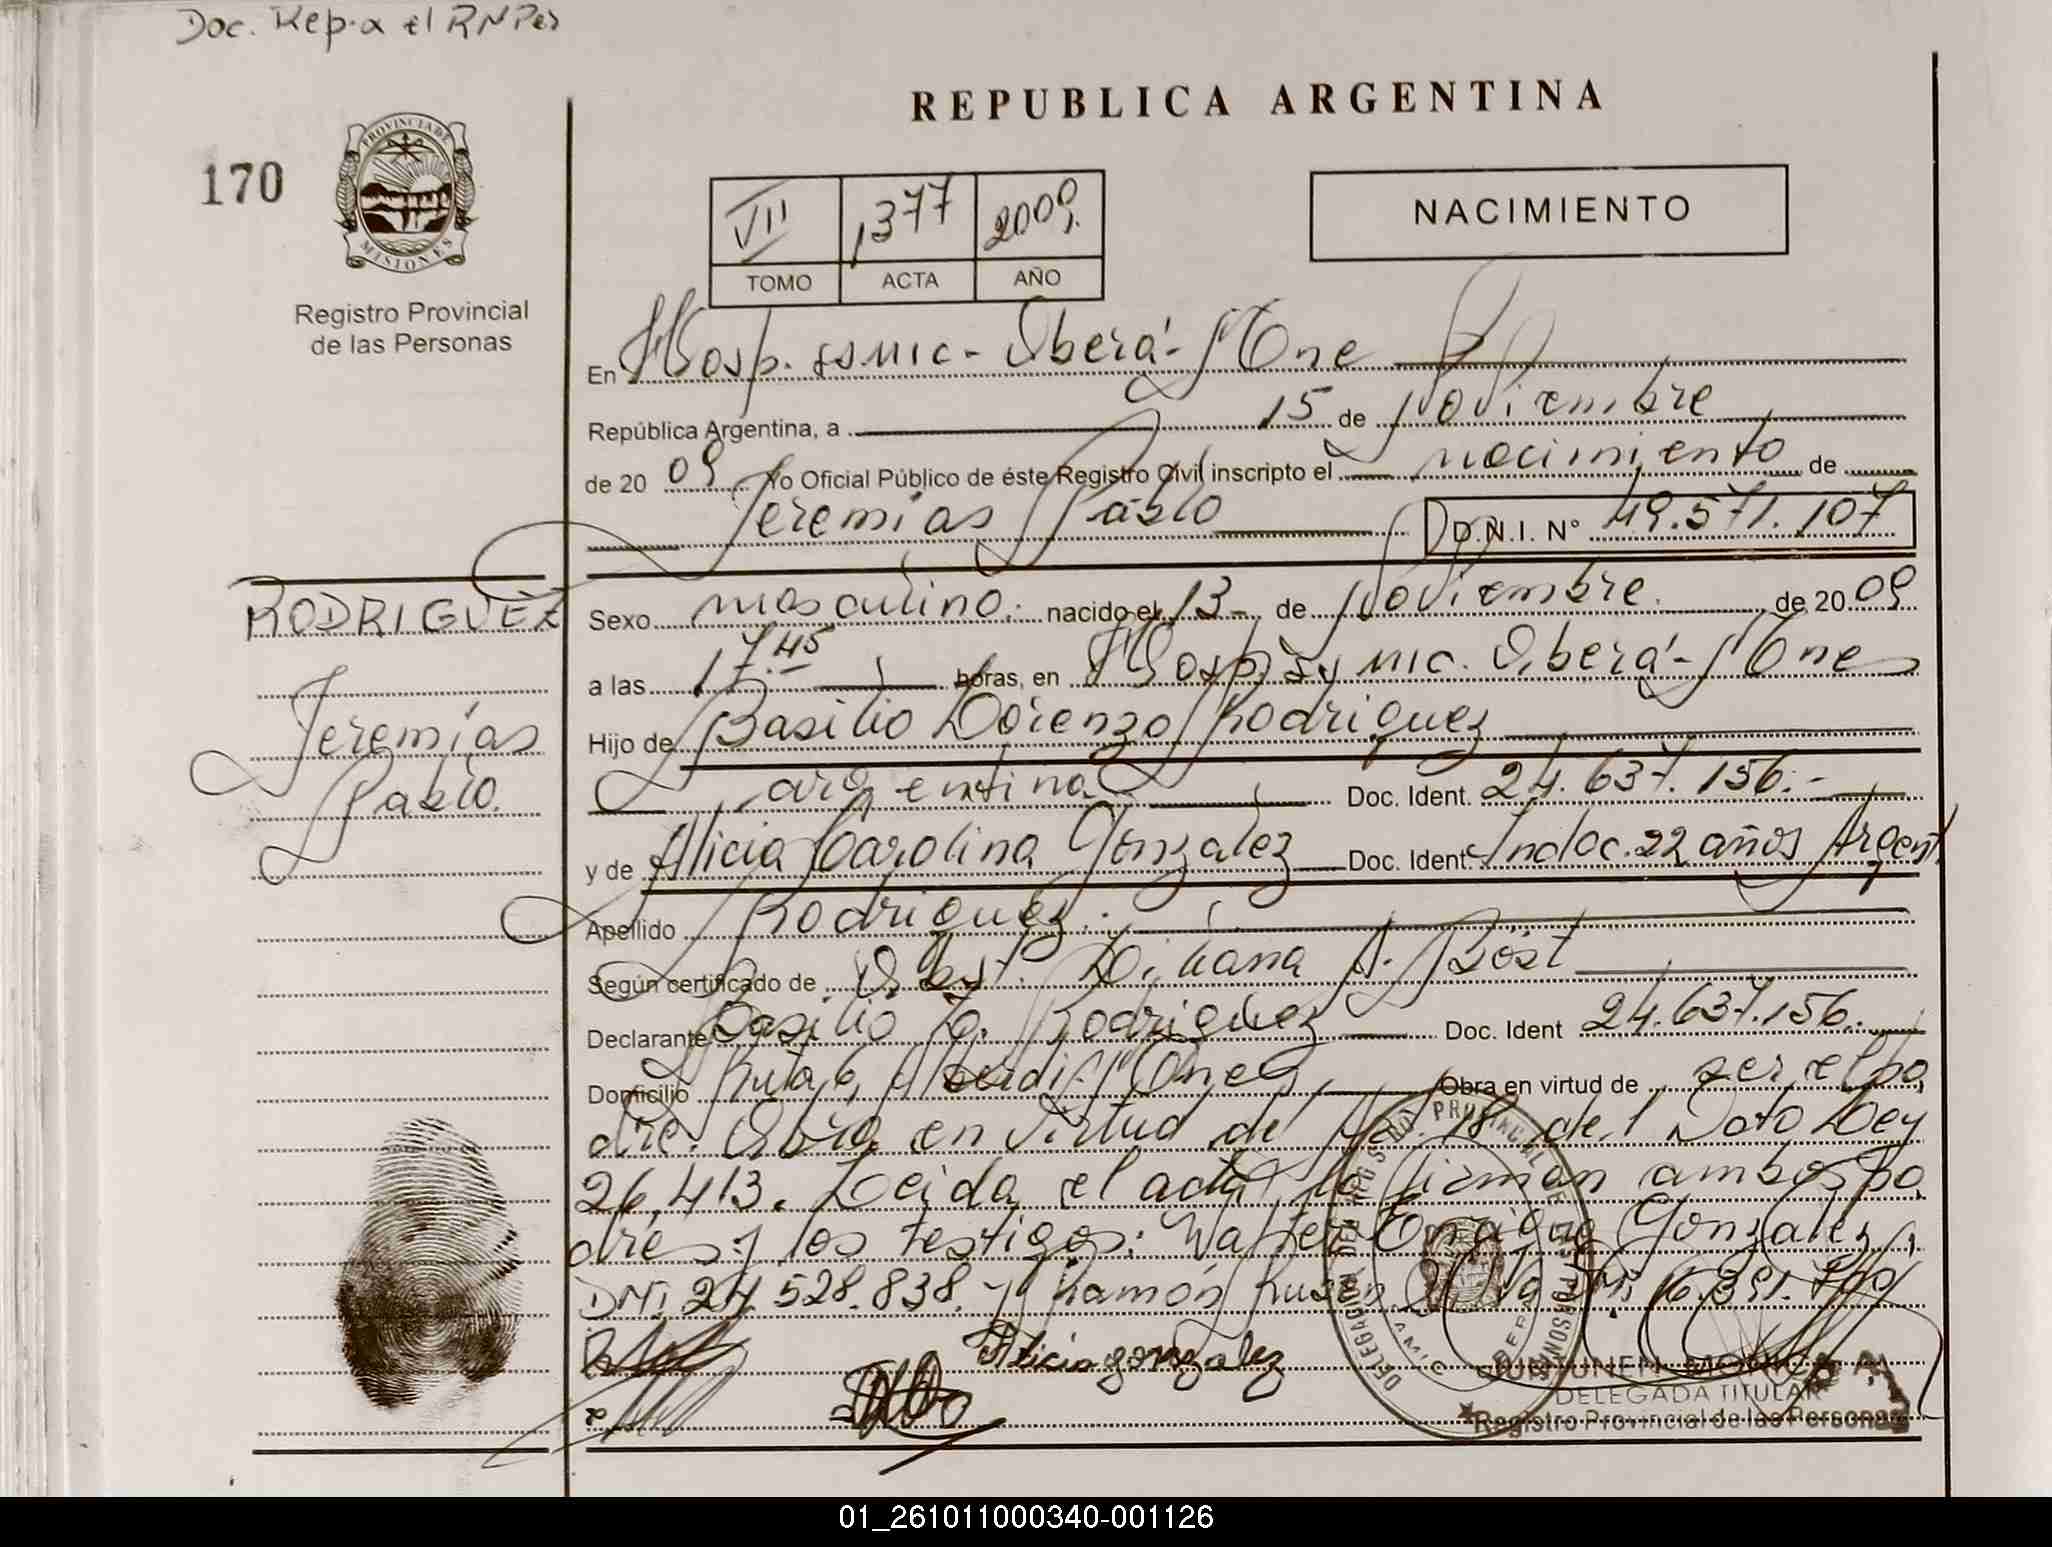 Doc. Rep. a el RNPer
REPUBLICA ARGENTINA
170
PROVINCIA DE
MISIONES
Registro Provincial
de las Personas
VII 1377 2009.
TOMO ACTA AÑO
NACIMIENTO
En Hosp. Samic - Oberá - Mnes
República Argentina, a 15 de Noviembre
de 20 09 Yo Oficial Público de éste Registro Civil inscripto el nacimiento de
Jeremías Pablo D.N.I. N° 49.571.107
RODRIGUEZ
Jeremías
Pablo.
Sexo masculino. nacido el 13 de Noviembre. de 20 09
a las 17.45 horas, en Hosp. Samic. Oberá - Mnes
Hijo de Basilio Lorenzo Rodriguez
argentina Doc. Ident. 24.637.156.-
y de Alicia Carolina Gonzalez Doc. Ident. Indoc. 22 años Argent
Apellido Rodriguez.
Según certificado de Obst. Liliana A. Bost
Declarante Basilio L. Rodriguez Doc. Ident 24.637.156.
Domicilio Ruta 6, Alberdi. Mnes Obra en virtud de ser el pa
dre. Obra en virtud de Art. 18 del Dcto Ley
26.413. Leida el acta la firman ambos pa
dres y los testigos: Walter Gonzalez,
DNI. 24.528.838. y Ramón Ruben DNI. 16.391.700
Alicia gonzalez
REGISTRO PROVINCIAL DE LAS PERSONAS
DELEGACION
SAMIC
OBERA
QUINTUNEN, MONICA
DELEGADA TITULAR
Registro Provincial de las Personas
01_261011000340-001126